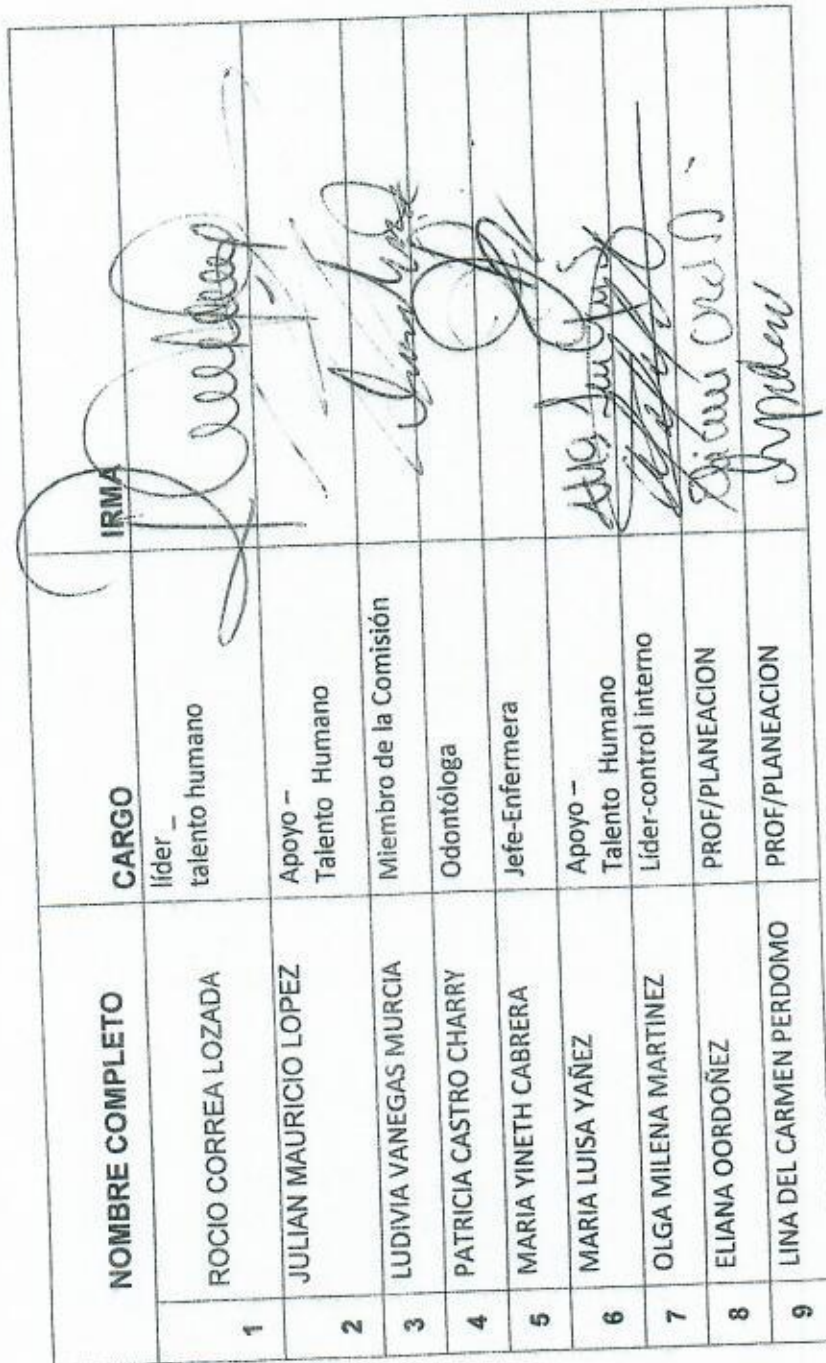 NOMBRE COMPLETO CARGO IRMA
1 ROCIO CORREA LOZADA líder _
talento humano
2 JULIAN MAURICIO LOPEZ Apoyo –
Talento Humano
3 LUDIVIA VANEGAS MURCIA Miembro de la Comisión
4 PATRICIA CASTRO CHARRY Odontóloga
5 MARIA YINETH CABRERA Jefe-Enfermera
6 MARIA LUISA YAÑEZ Apoyo –
Talento Humano
7 OLGA MILENA MARTINEZ Líder-control interno
8 ELIANA OORDOÑEZ PROF/PLANEACION
9 LINA DEL CARMEN PERDOMO PROF/PLANEACION